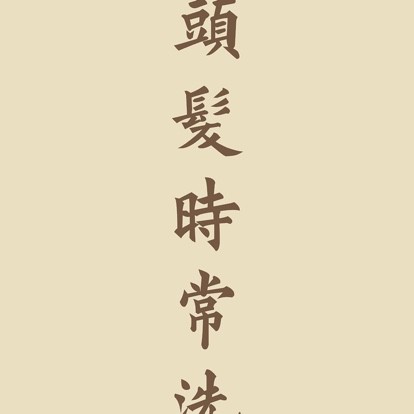 頭髮時常洗